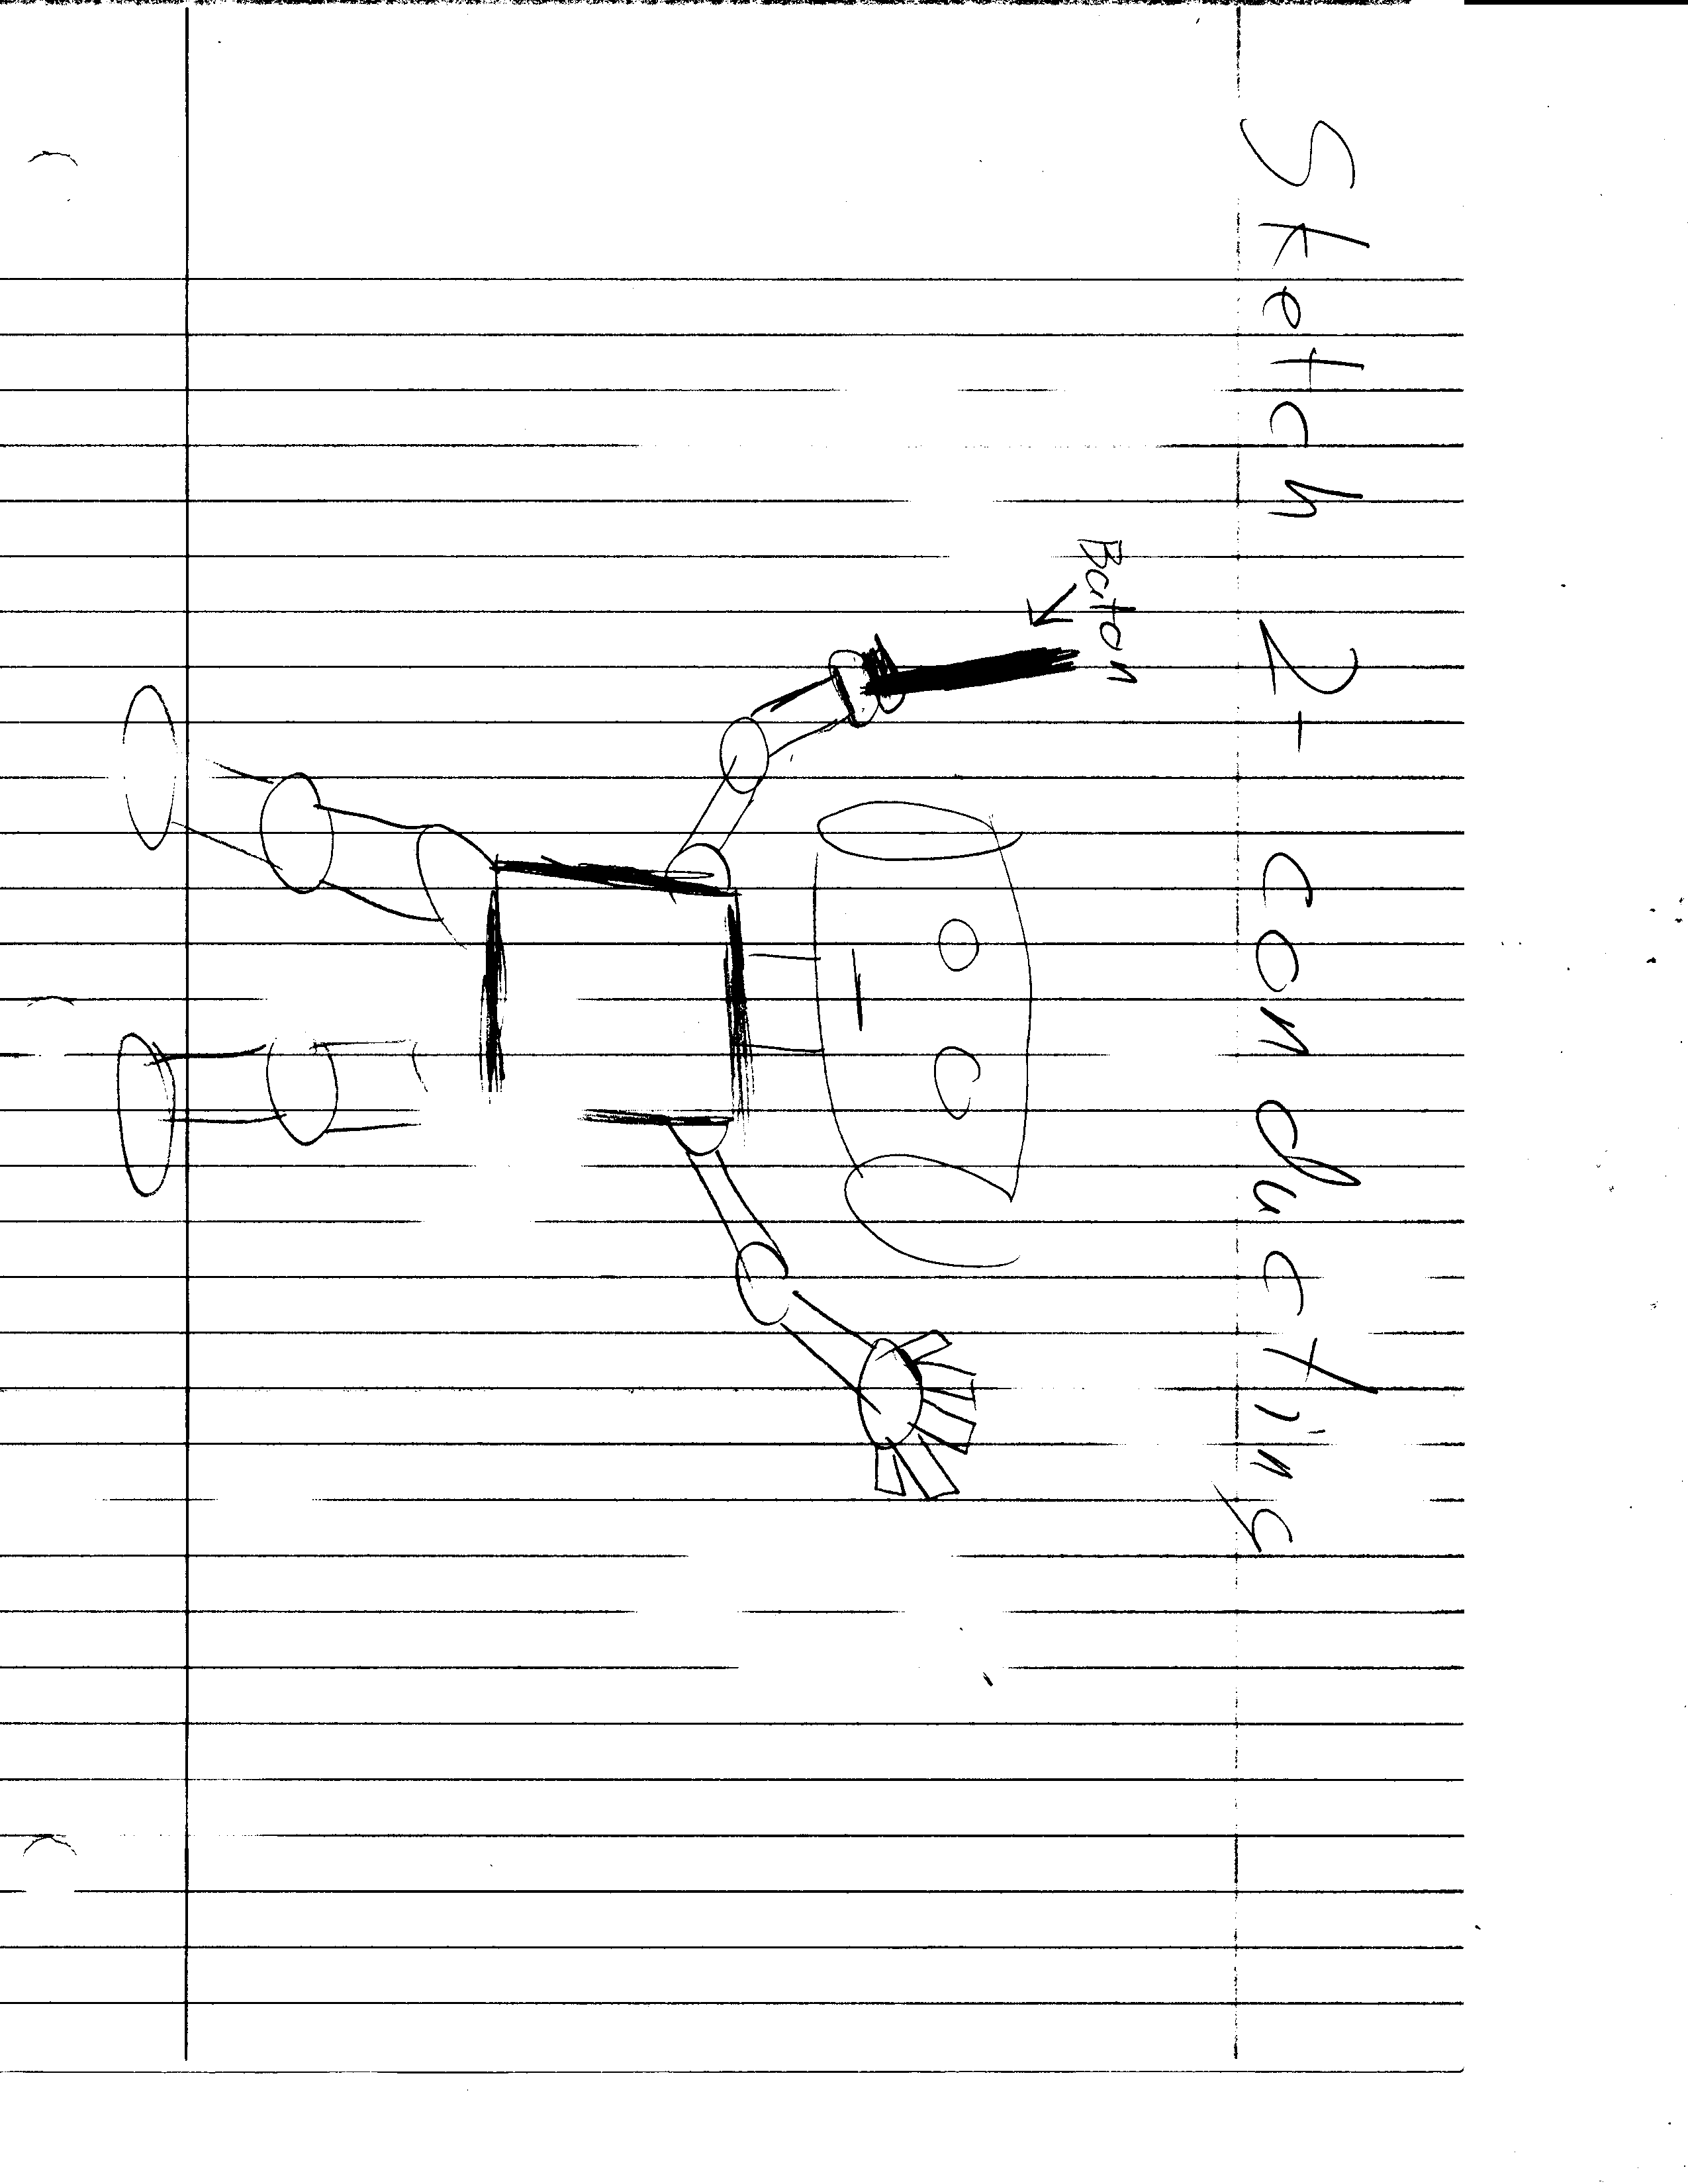 Sketch 2 - conducting
Baton